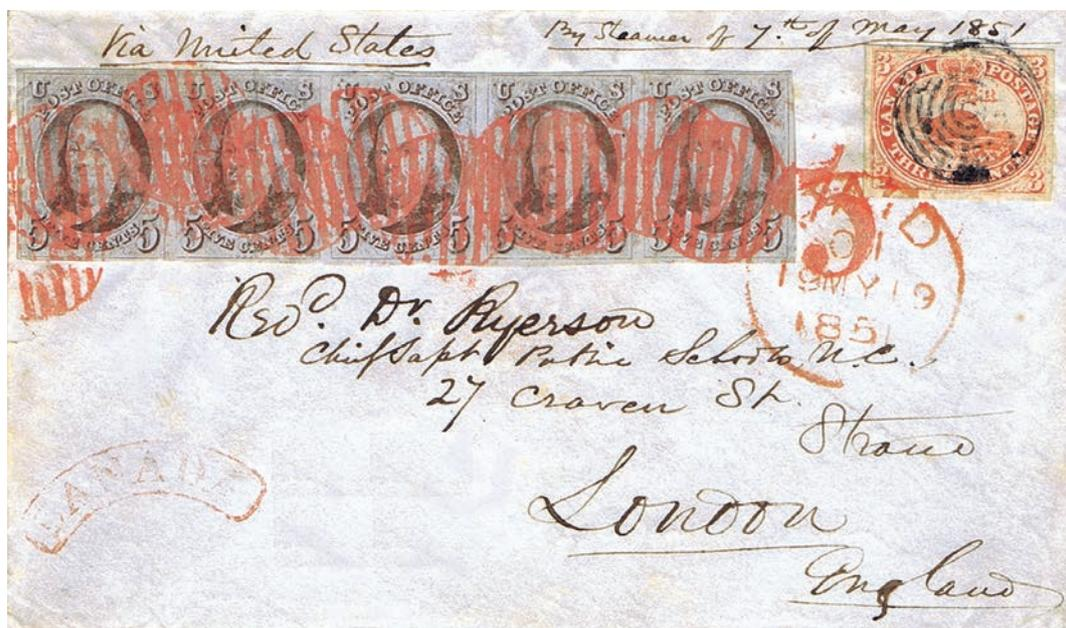 Via United States
By Steamer of 7th of May 1851
U S
POST OFFICE
5 FIVE CENTS 5
U S
POST OFFICE
5 FIVE CENTS 5
U S
POST OFFICE
5 FIVE CENTS 5
U S
POST OFFICE
5 FIVE CENTS 5
U S
POST OFFICE
5 FIVE CENTS 5
3 3
CANADA POSTAGE
THREE PENCE
3 3
PAID
19MY19
1851
Revd. Dr. Ryerson
Chief Supt Public Schools
27 Craven St.
Strand
London
England
CANADA